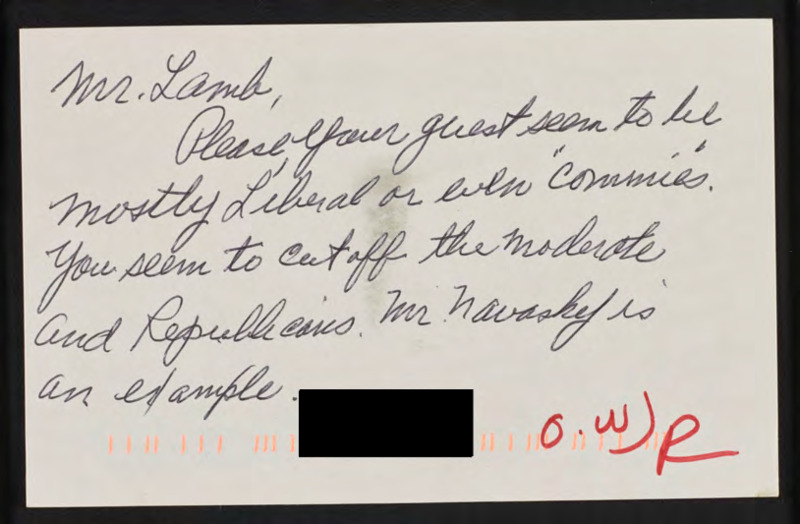 Mr. Lamb,
Please, your guest seem to be
mostly Liberal or even "commies".
You seem to cut off the moderate
and Republicans. Mr. Navasky is
an example.
O.W)R